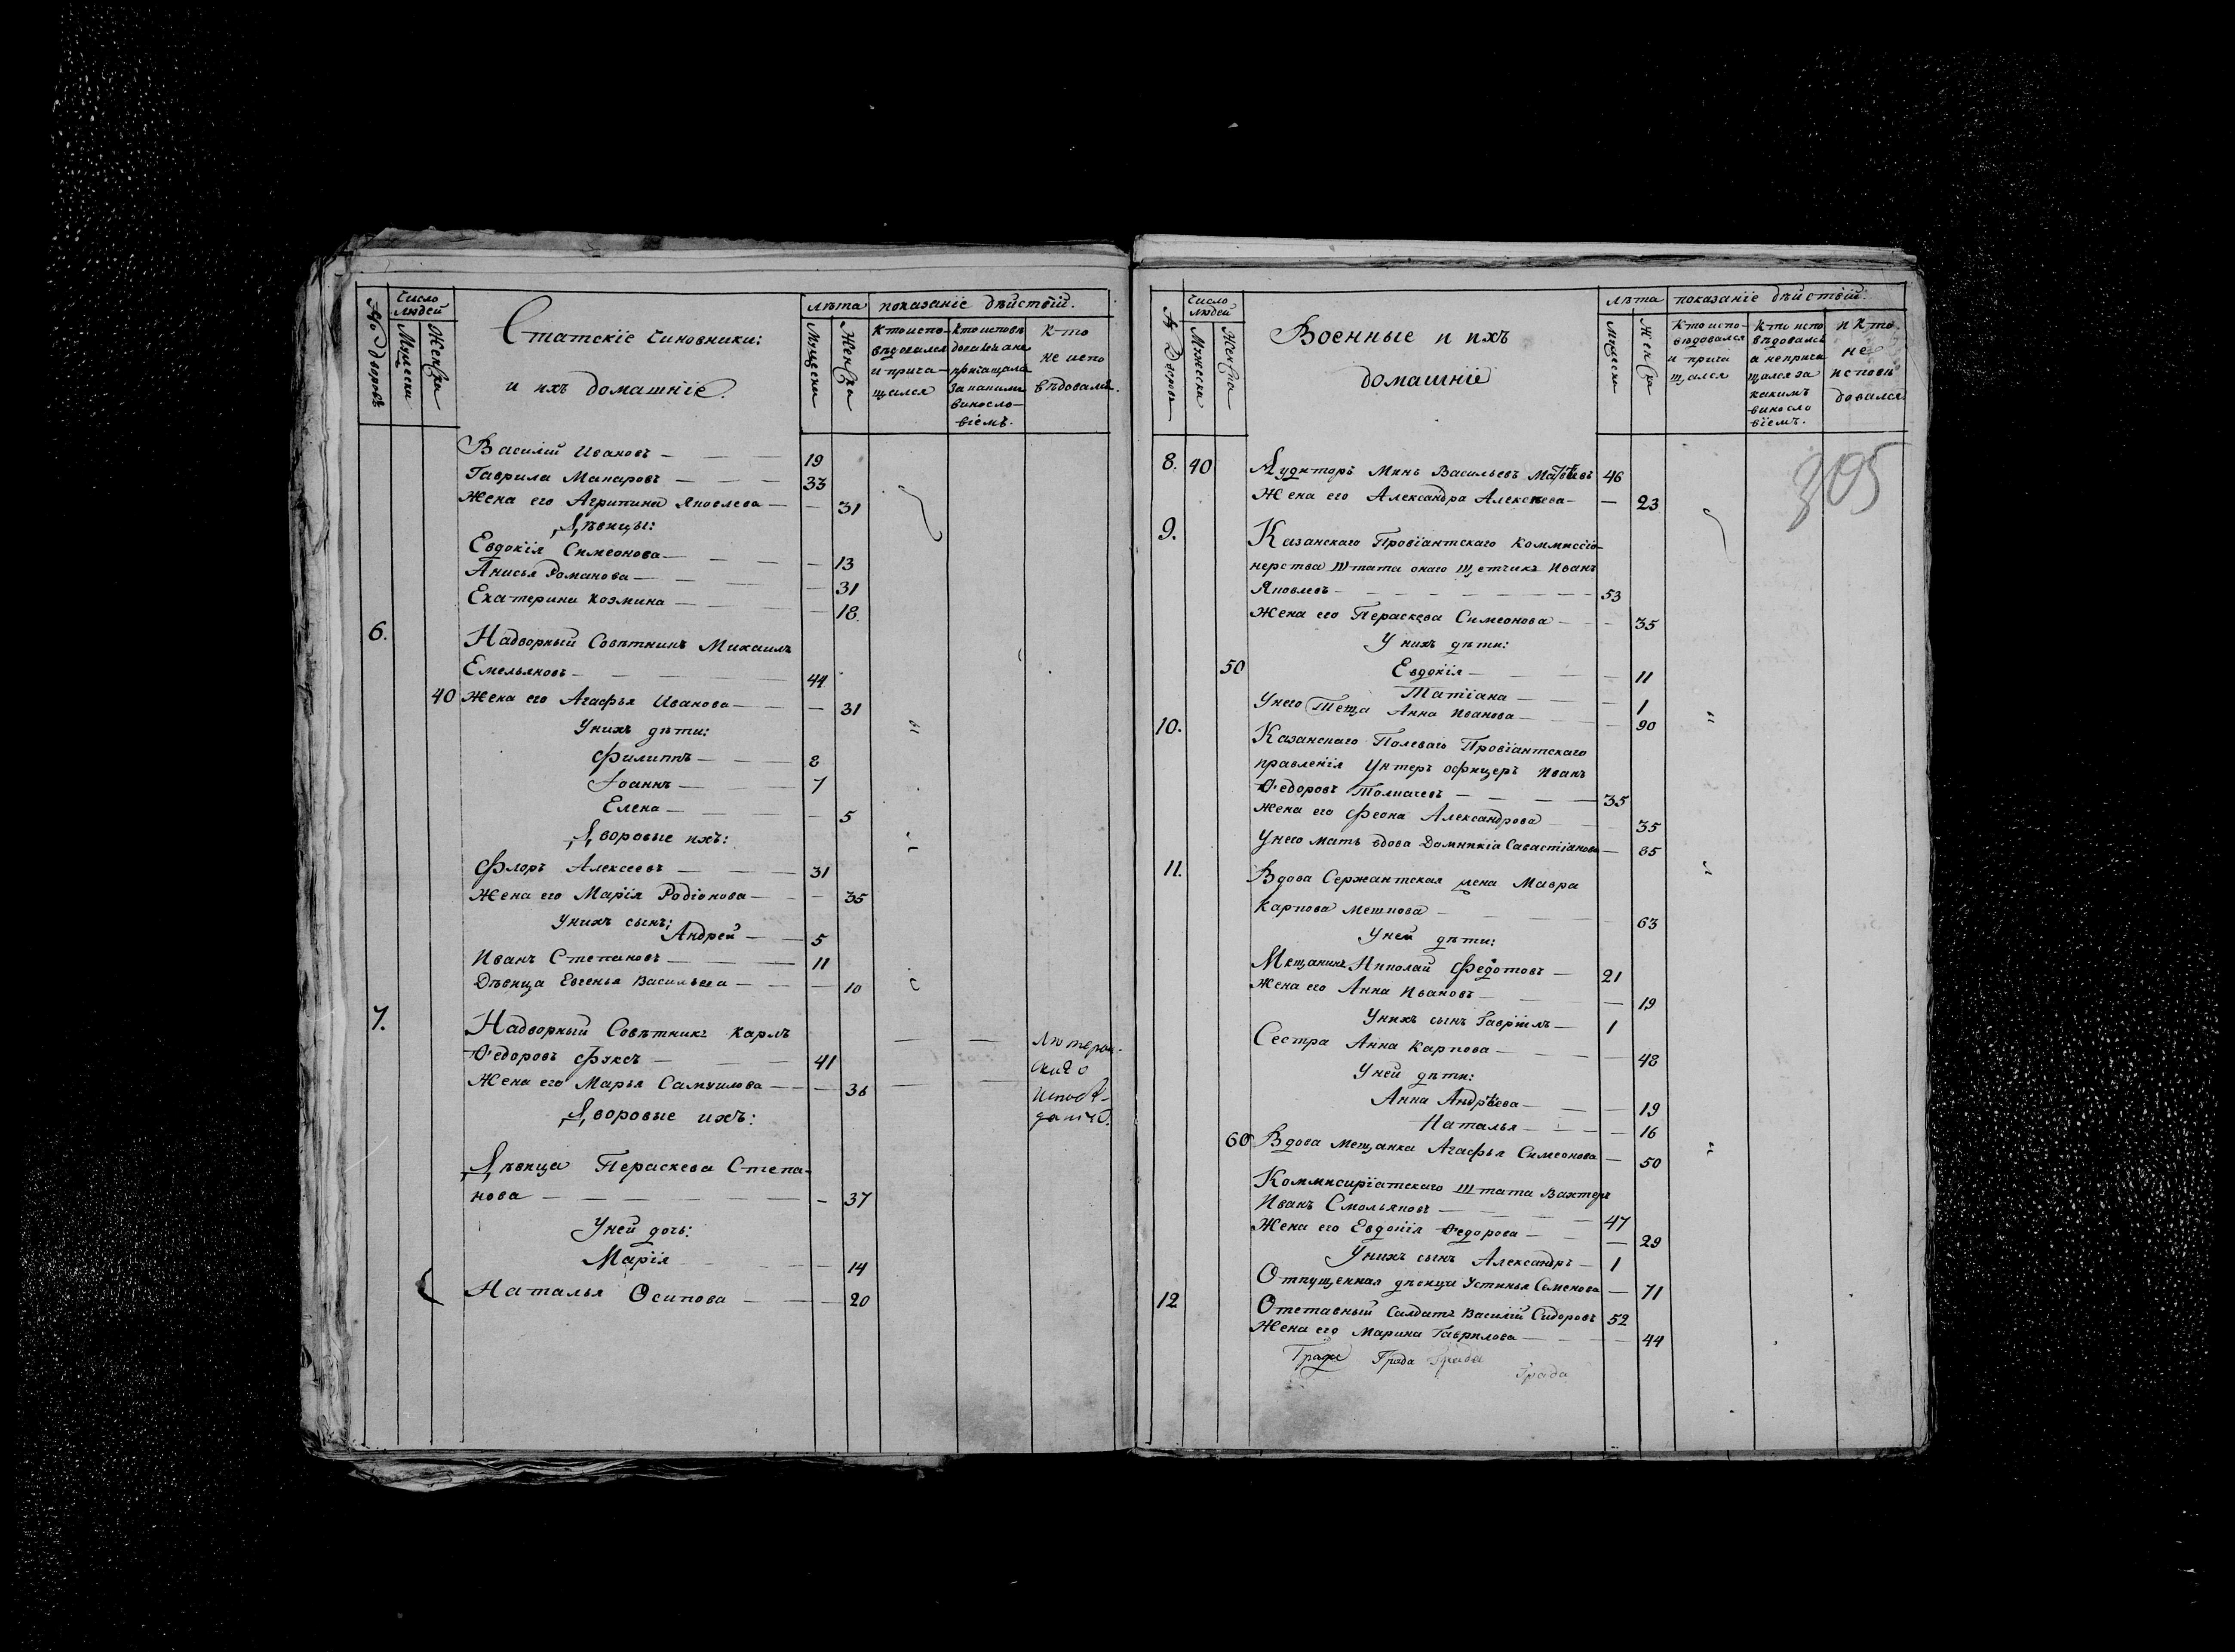 № дворовъ
Число людей
Мужеска
Женска
Статскіе чиновники:
и ихъ домашніе.
лѣта
Мужеска
Женска
показаніе дѣйствій.
Кто испо-
вѣдовался
и прича-
щался
Кто исповѣ
довался а не
причащался
за какимъ
виносло-
віемъ.
Кто
не испо
вѣдовался.
Василій Ивановъ — 19
Гаврила Макаровъ — 33
Жена его Агрипина Яковлева — 31
Дѣвицы:
Евдокія Симеонова — 13
Анисья Романова — 31
Екатерина Козмина — 18
6. Надворный Совѣтникъ Михаилъ
Емельяновъ — 44
40 Жена его Агафья Иванова — 31
У нихъ дѣти:
Филиппъ — 8
Іоаннъ — 7
Елена — 5
Дворовые ихъ:
Флоръ Алексеевъ — 31
Жена его Марія Родіонова — 35
У нихъ сынъ:
Андрей — 5
Иванъ Степановъ — 11
Дѣвица Евгенья Васильева — 10
7. Надворный Совѣтникъ Карлъ
Ѳедоровъ Фуксъ — 41
Жена его Марья Самуилова — 36
Лютеран-
скаго
Исповѣ-
данія.
Дворовые ихъ:
Дѣвица Пераскева Степа-
нова — 37
У ней дочь:
Марія — 14
Наталья Осипова — 20
№ Дворовъ
Число людей
Мужеска
Женска
Военные и ихъ
домашніе
лѣта
Мужеска
Женска
показаніе дѣйствій.
Кто испо-
вѣдовался
и прича
щался
Кто испо
вѣдовался
а не прича
щался за
какимъ
виносло
віемъ.
и кто
не
исповѣ
довался
305
8. 40 Аудиторъ Минъ Васильевъ Матвѣевъ 46
Жена его Александра Алексеева — 23
9. Казанскаго Провіантскаго Коммиссіо-
нерства Штата онаго Щетчикъ Иванъ
Яковлевъ — 53
Жена его Пераскева Симеонова — 35
У нихъ дѣти:
50 Евдокія — 11
Татіана — 1
У него Теща Анна Иванова — 90
10. Казанскаго Полеваго Провіантскаго
правленія Унтеръ офицеръ Иванъ
Ѳедоровъ Толмачевъ — 35
Жена его Феона Александрова 35
У него мать вдова Домникіа Савастіанова — 85
11. Вдова Сержантская жена Мавра
Карпова Мешкова — 63
У ней дѣти:
Мещанинъ Николай Федотовъ — 21
Жена его Анна Ивановъ — 19
У нихъ сынъ Гавріилъ — 1
Сестра Анна Карпова — 48
У ней дѣти:
Анна Андрѣева — 19
Наталья — 16
60 Вдова Мещанка Агафья Симеонова — 50
Коммисаріатскаго Штата Вахтеръ
Иванъ Смольяновъ — 47
Жена его Евдокія Ѳедорова — 29
У нихъ сынъ Александръ — 1
Отпущенная дѣвица Устинья Семенова — 71
12 Отставный Салдатъ Василій Сидоровъ 52
Жена его Марина Гаврилова — 44
Града Града Града
Града